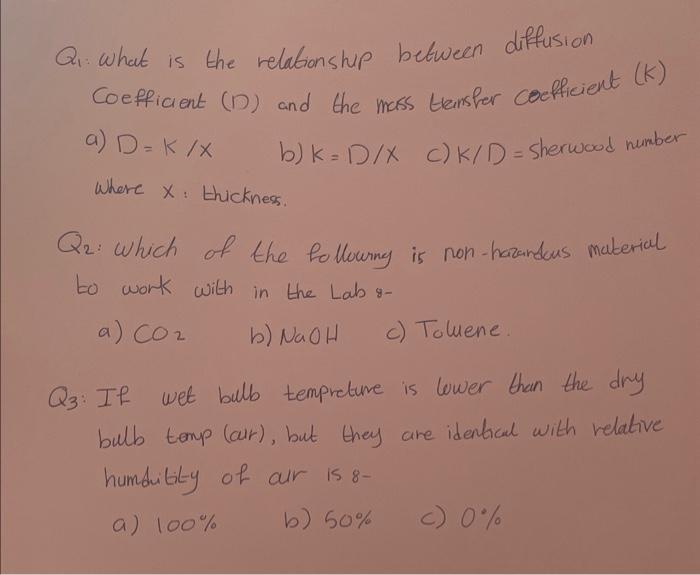 Q1: what is the relationship between diffusion
Coefficient (D) and the mass transfer coefficient (K)
a) D = K/X b) K = D/X c) K/D = Sherwood number
where X : thickness.
Q2: which of the following is non-hazardous material
to work with in the Lab :-
a) CO2 b) NaOH c) Toluene.
Q3: If wet bulb tempreture is lower than the dry
bulb temp (air), but they are identical with relative
humditity of air is :-
a) 100% b) 50% c) 0%